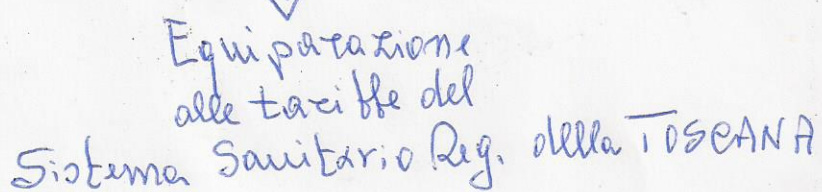 Equiparazione
alle tariffe del
Sistema Sanitario Reg. della TOSCANA